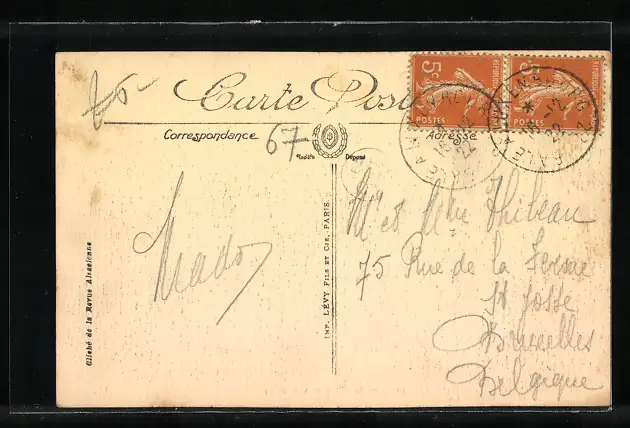 Carte Postale
Correspondance
Adresse
67
Modèle Déposé
5c
REPUBLIQUE
POSTES
5c
POSTES
Mado
Mr et Mme Thibeau
75 Rue de la Ferme
St Josse
Bruxelles
Belgique
Cliché de la Revue Alsacienne
IMP. LÉVY FILS ET CIE, PARIS.